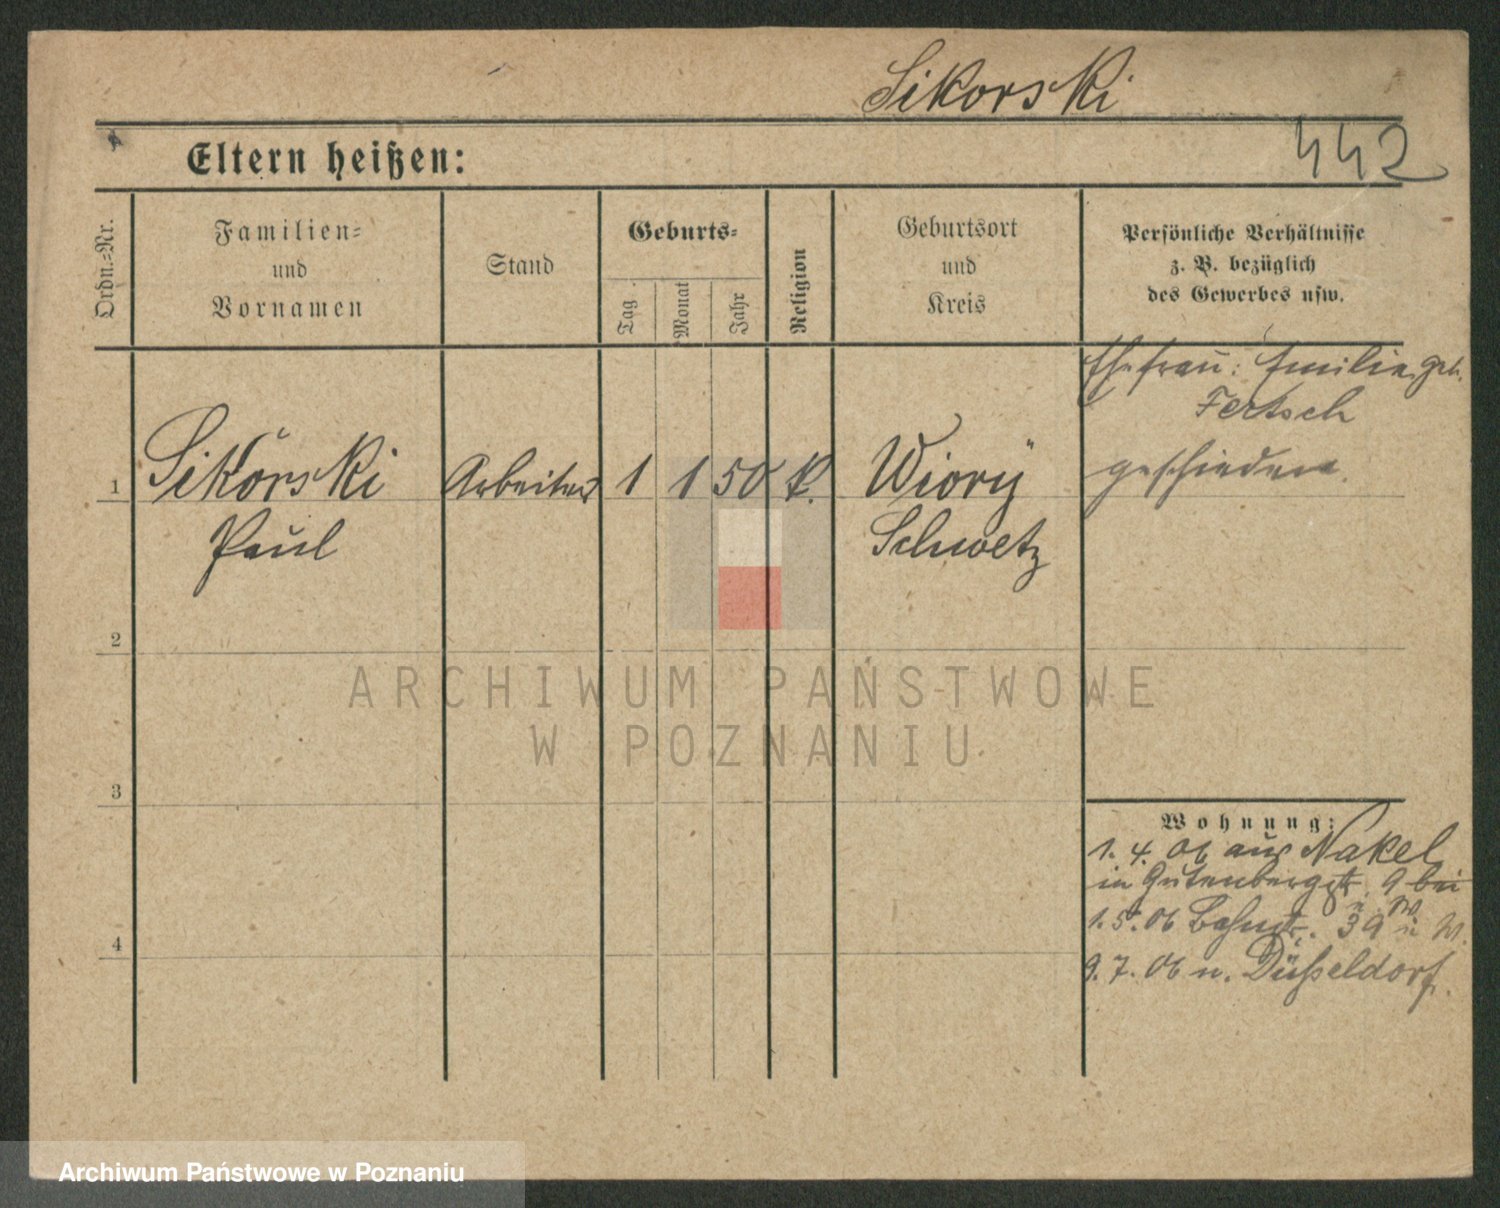 Sikorski
442
Eltern heißen:
Ordn.-Nr.
Familien-
und
Vornamen
Stand
Geburts-
Tag
Monat
Jahr
Religion
Geburtsort
und
Kreis
Persönliche Verhältnisse
z. B. bezüglich
des Gewerbes usw.
1
Sikorski
Paul
Arbeiter
1
1
50
k.
Wiory
Schwetz
Ehefrau: Emilie geb.
Fertsch
geschieden.
2
3
4
Wohnung:
1. 4. 06 aus Nakel
in Gutenbergstr. 9 bei
1. 5. 06 Bahnstr. 39
9. 7. 06 n. Düsseldorf.
ARCHIWUM PAŃSTWOWE
W POZNANIU
Archiwum Państwowe w Poznaniu